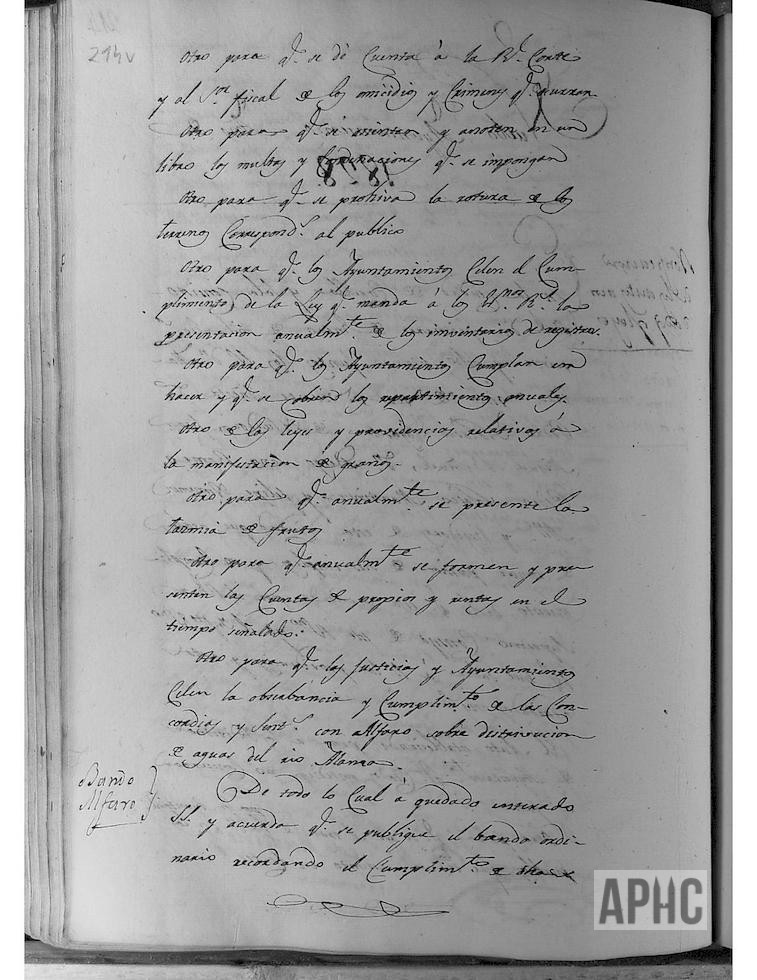 214v
Otro para q.e se dé Cuenta à la R.l Corte
y al S.or fiscal de los omicidios y Crimenes q.e ocurran
Otro para q.e se asienten y anoten en un
libro las multas y Condenaciones q.e se impongan
Otro para q.e se prohiva la rotura de los
terrenos Correspond.s al publico
Otro para q.e los Ayuntamientos Celen el Cum-
plimiento de la Ley q.e manda à los Es.nos R.s la
presentacion anualm.te de los inventarios de registros.
Otro para q.e los Ayuntamientos Cumplan en
hacer y q.e se cobren los repartimientos anuales.
Otro de las leyes y providencias relativas à
la manifestacion de granos.
Otro para q.e anualm.te se presente la
tazmia de frutos
Otro para q.e anualm.te se formen y pre
senten las Cuentas de propios y rentas en el
tiempo señalado.
Otro para q.e las Justicias y Ayuntamientos
Celen la obserbancia y Cumplim.to de las Con-
cordias y Sent.s con Alfaro sobre distrivucion
de aguas del rio Alama.
Bando
Alfaro
De todo lo Cual à quedado enterado
SS. y acuerda q.e se publique el bando ordi-
nario recordando el Cumplim.to de
APHC